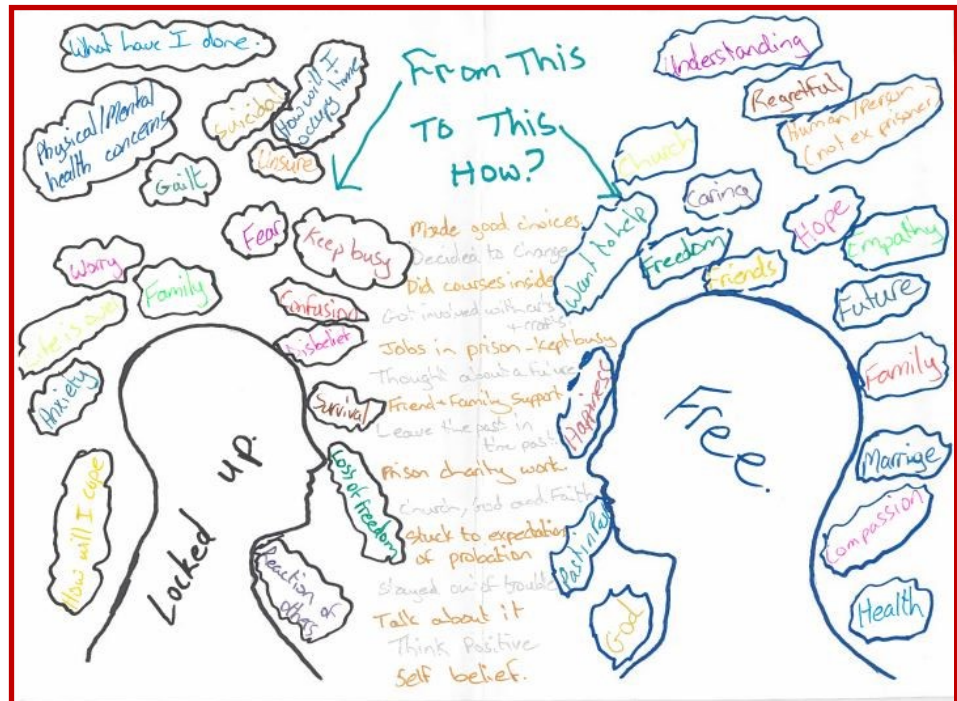 What have I done.
Physical/Mental
health concerns
Suicidal
How will I
occupy time
Unsure
Guilt
Fear
Keep busy
Worry
Family
Confusing
Disbelief
Life is over
Anxiety
Survival
How will I cope
Loss of freedom
Reaction of
others
Locked up.
From This
To This
How?
Made good choices.
Decided to Change
Did courses inside
Got involved with arts
+ crafts.
Jobs in prison - kept busy
Thought about a future
Friend + Family Support
Leave the past in
the past.
Prison charity work.
Church, God and Faith
Stuck to expectation
of probation
Stayed out of trouble
Talk about it
Think Positive
Self belief.
Understanding
Regretful
Human/Person
(not ex prisoner)
Church
Caring
Want to help
Freedom
Friends
Hope
Empathy
Future
Family
Happiness
Free.
Marriage
Compassion
Past in Past
God
Health